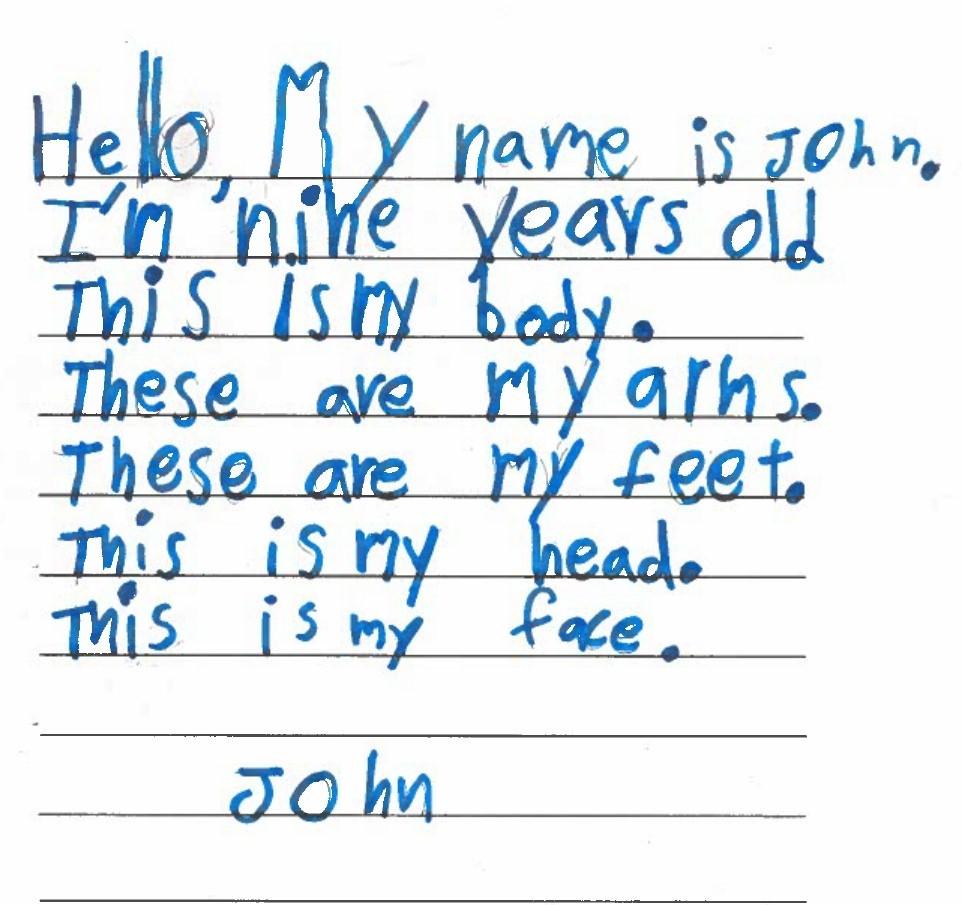 Hello, My name is John.
I'm nine years old
This is my body.
These are my arms.
These are my feet.
This is my head.
This is my face.
John